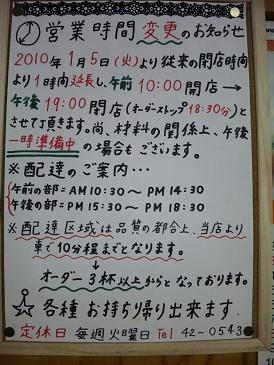 営業時間変更のお知らせ
2010年1月5日(火)より従来の閉店時間
より1時間延長し、午前10:00開店→
午後19:00閉店(オーダーストップ18:30分)と
させて頂きます。尚、材料の関係上、午後
一時準備中の場合もございます。
※配達のご案内…
午前の部=AM10:30〜PM14:30
午後の部=PM15:30〜PM18:30
※配達区域は品質の都合上、当店より
車で10分程までとなります。
→オーダー3杯以上からとなっております。
☆各種お持ち帰り出来ます.
定休日 毎週火曜日 Tel 42-0543